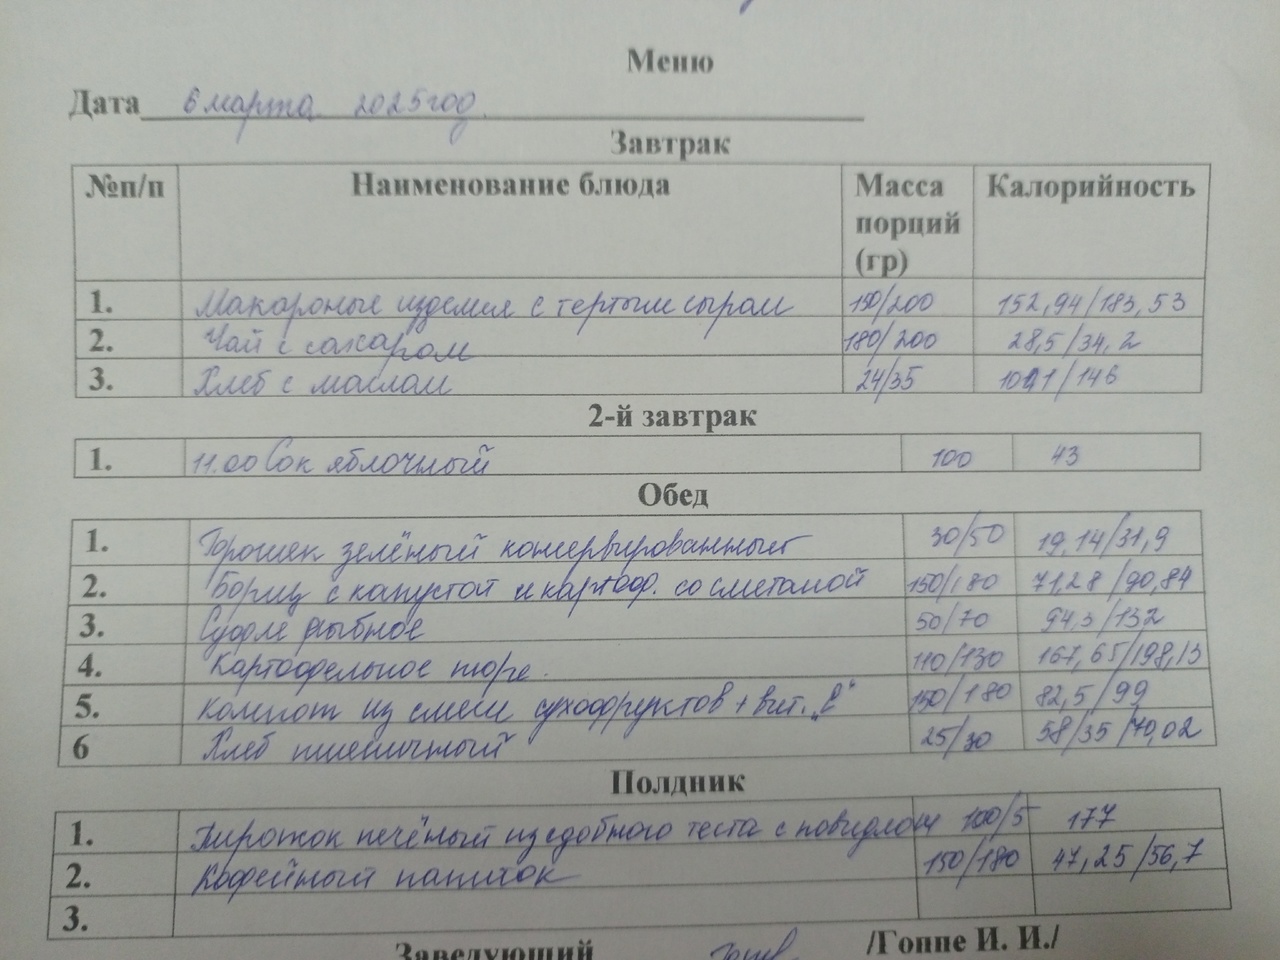 Меню
Дата 6 марта 2025год.
Завтрак
№п/п Наименование блюда Масса порций (гр) Калорийность
1. Макароные изделия с тертым сыром 150/200 152,94/183,53
2. Чай с сахаром 180/200 28,5/34,2
3. Хлеб с маслом 24/35 /146
2-й завтрак
1. 11.00 Сок яблочный 100 43
Обед
1. Горошек зелёный консервированный 30/50 19,14/31,9
2. Борщ с капустой и картоф. со сметаной 150/180 71,28/90,84
3. Суфле рыбное 50/70 94,3/132
4. Картофельное пюре. 110/130 167,65/198,13
5. Компот из смеси сухофруктов + вит. „С" 150/180 82,5/99
6 Хлеб пшеничный 25/30 58/35/70,02
Полдник
1. Пирожок печёный из сдобного теста с повидлом 100/5 177
2. Кофейный напиток 150/180 47,25/56,7
3.
Заведующий /Гоппе И. И./